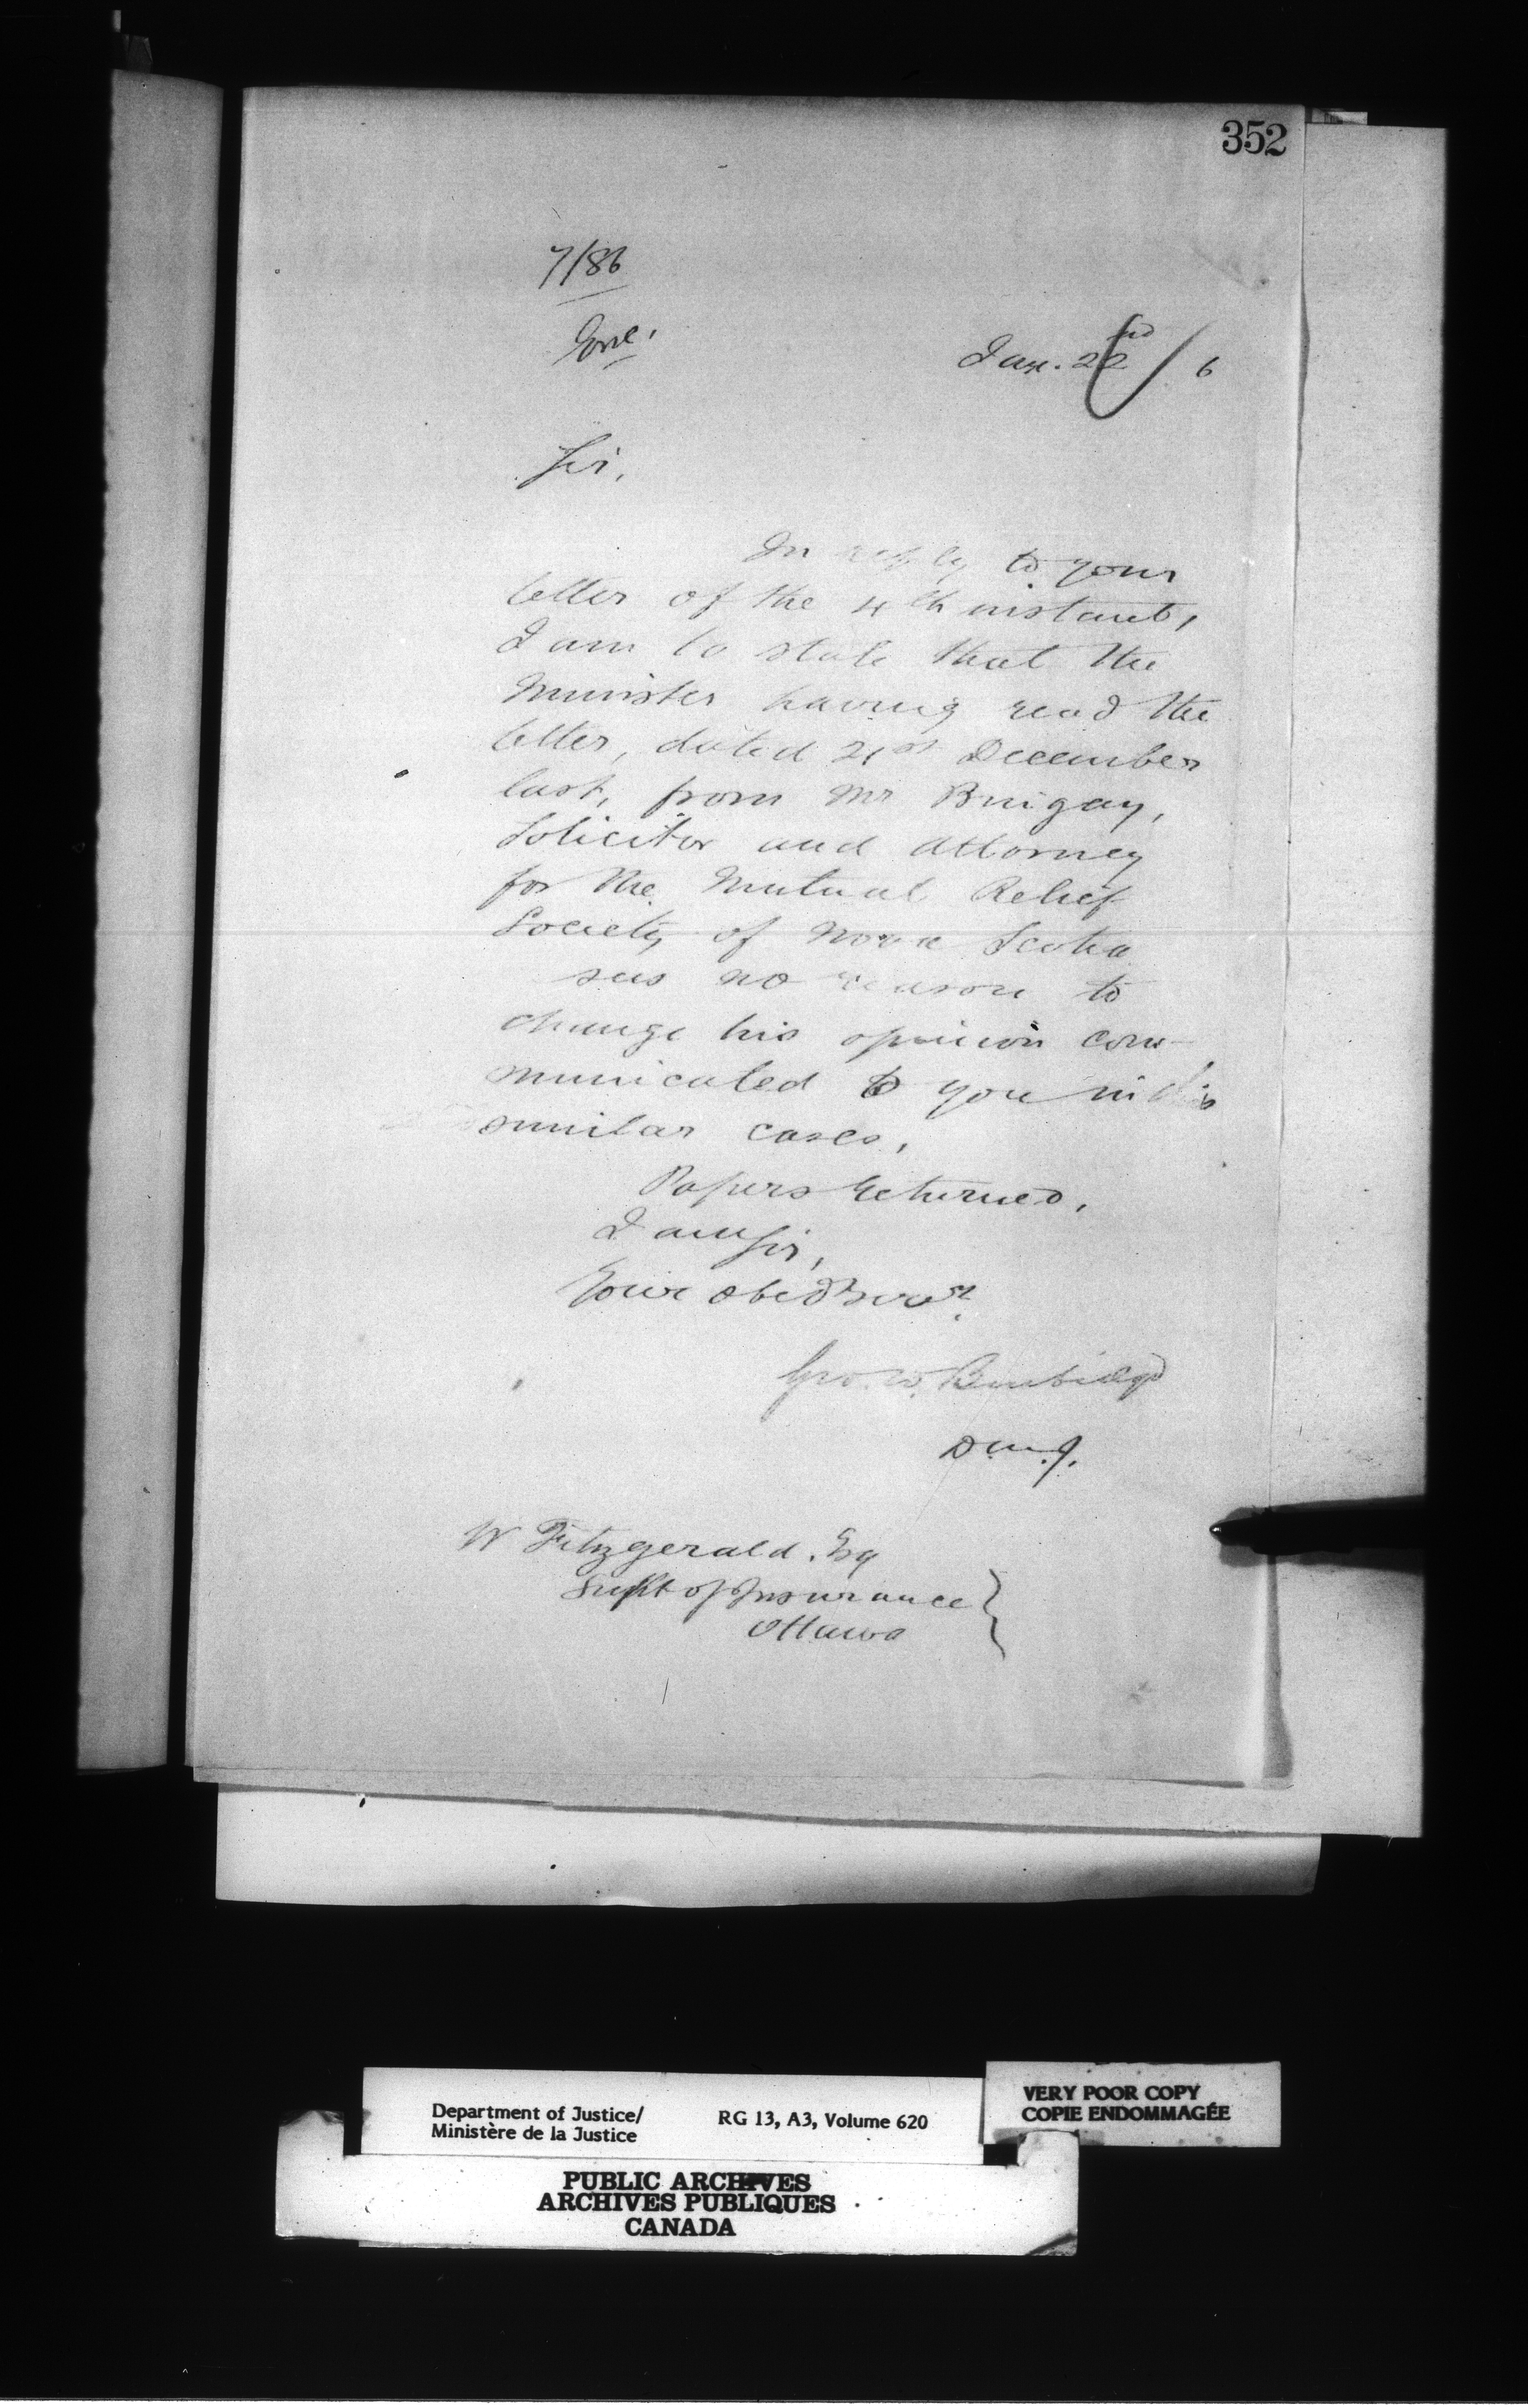 352
7/86
Jan. 22nd / 6
Sir,
In reply to your
letter of the 4th instant,
I am to state that the
Minister having read the
letter, dated 21st December
last, from Mr
Solicitor and Attorney
for the Mutual Relief
Society of Nova Scotia
sees no reason to
change his opinion com-
municated to you in
similar cases,
Papers returned,
I am Sir,
Your obedt servt.
Geo. W. Burbidge
D.M.J.
W Fitzgerald. Esq
Supt of Insurance }
Ottawa
Department of Justice/
Ministère de la Justice
RG 13, A3, Volume 620
VERY POOR COPY
COPIE ENDOMMAGÉE
PUBLIC ARCHIVES
ARCHIVES PUBLIQUES
CANADA